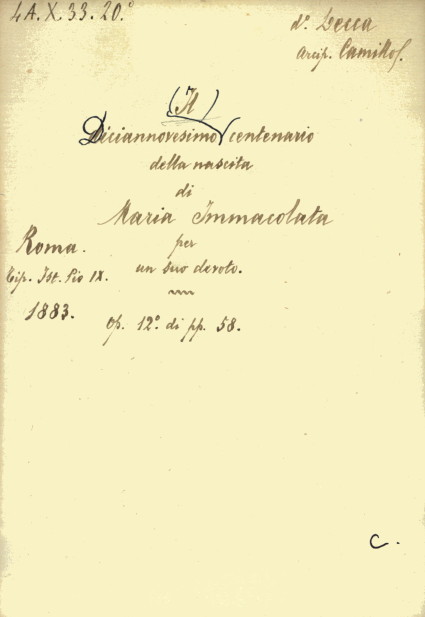 4A.X.33.20.°
d°. Lecca
Arcip. Camillo.
(Il)
Diciannovesimo centenario
della nascita
di
Maria Immacolata
per
un suo devoto.
Roma.
Tip. Ist. Pio IX.
1883.
Op. 12°. di pp. 58.
C.